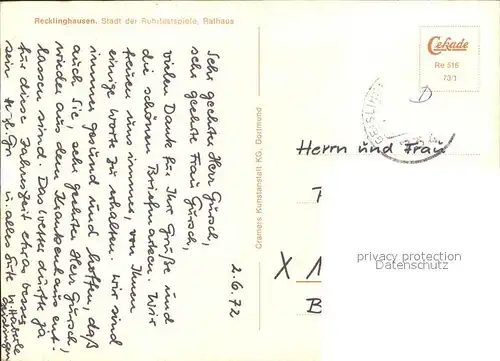 Recklinghausen. Stadt der Ruhrfestspiele, Rathaus
2.6.72
Sehr geehrter Herr Gürsch,
sehr geehrte Frau Gürsch,
vielen Dank für Ihre Grüße und
die schönen Briefmarken. Wir
freuen uns immer, von Ihnen
einige Worte zu erhalten. Wir sind
immer gesund und hoffen, daß
auch Sie, sehr geehrter Herr Gürsch,
wieder aus dem Krankenhaus ent-
lassen sind. Das Wetter dürfte ja
für diese Jahreszeit etwas besser
sein. H. Gr. u. alles Gute
Cramers Kunstanstalt KG, Dortmund
Cekade
Re 516
73/1
D
Herrn und Frau
X 1
B
privacy protection
Datenschutz